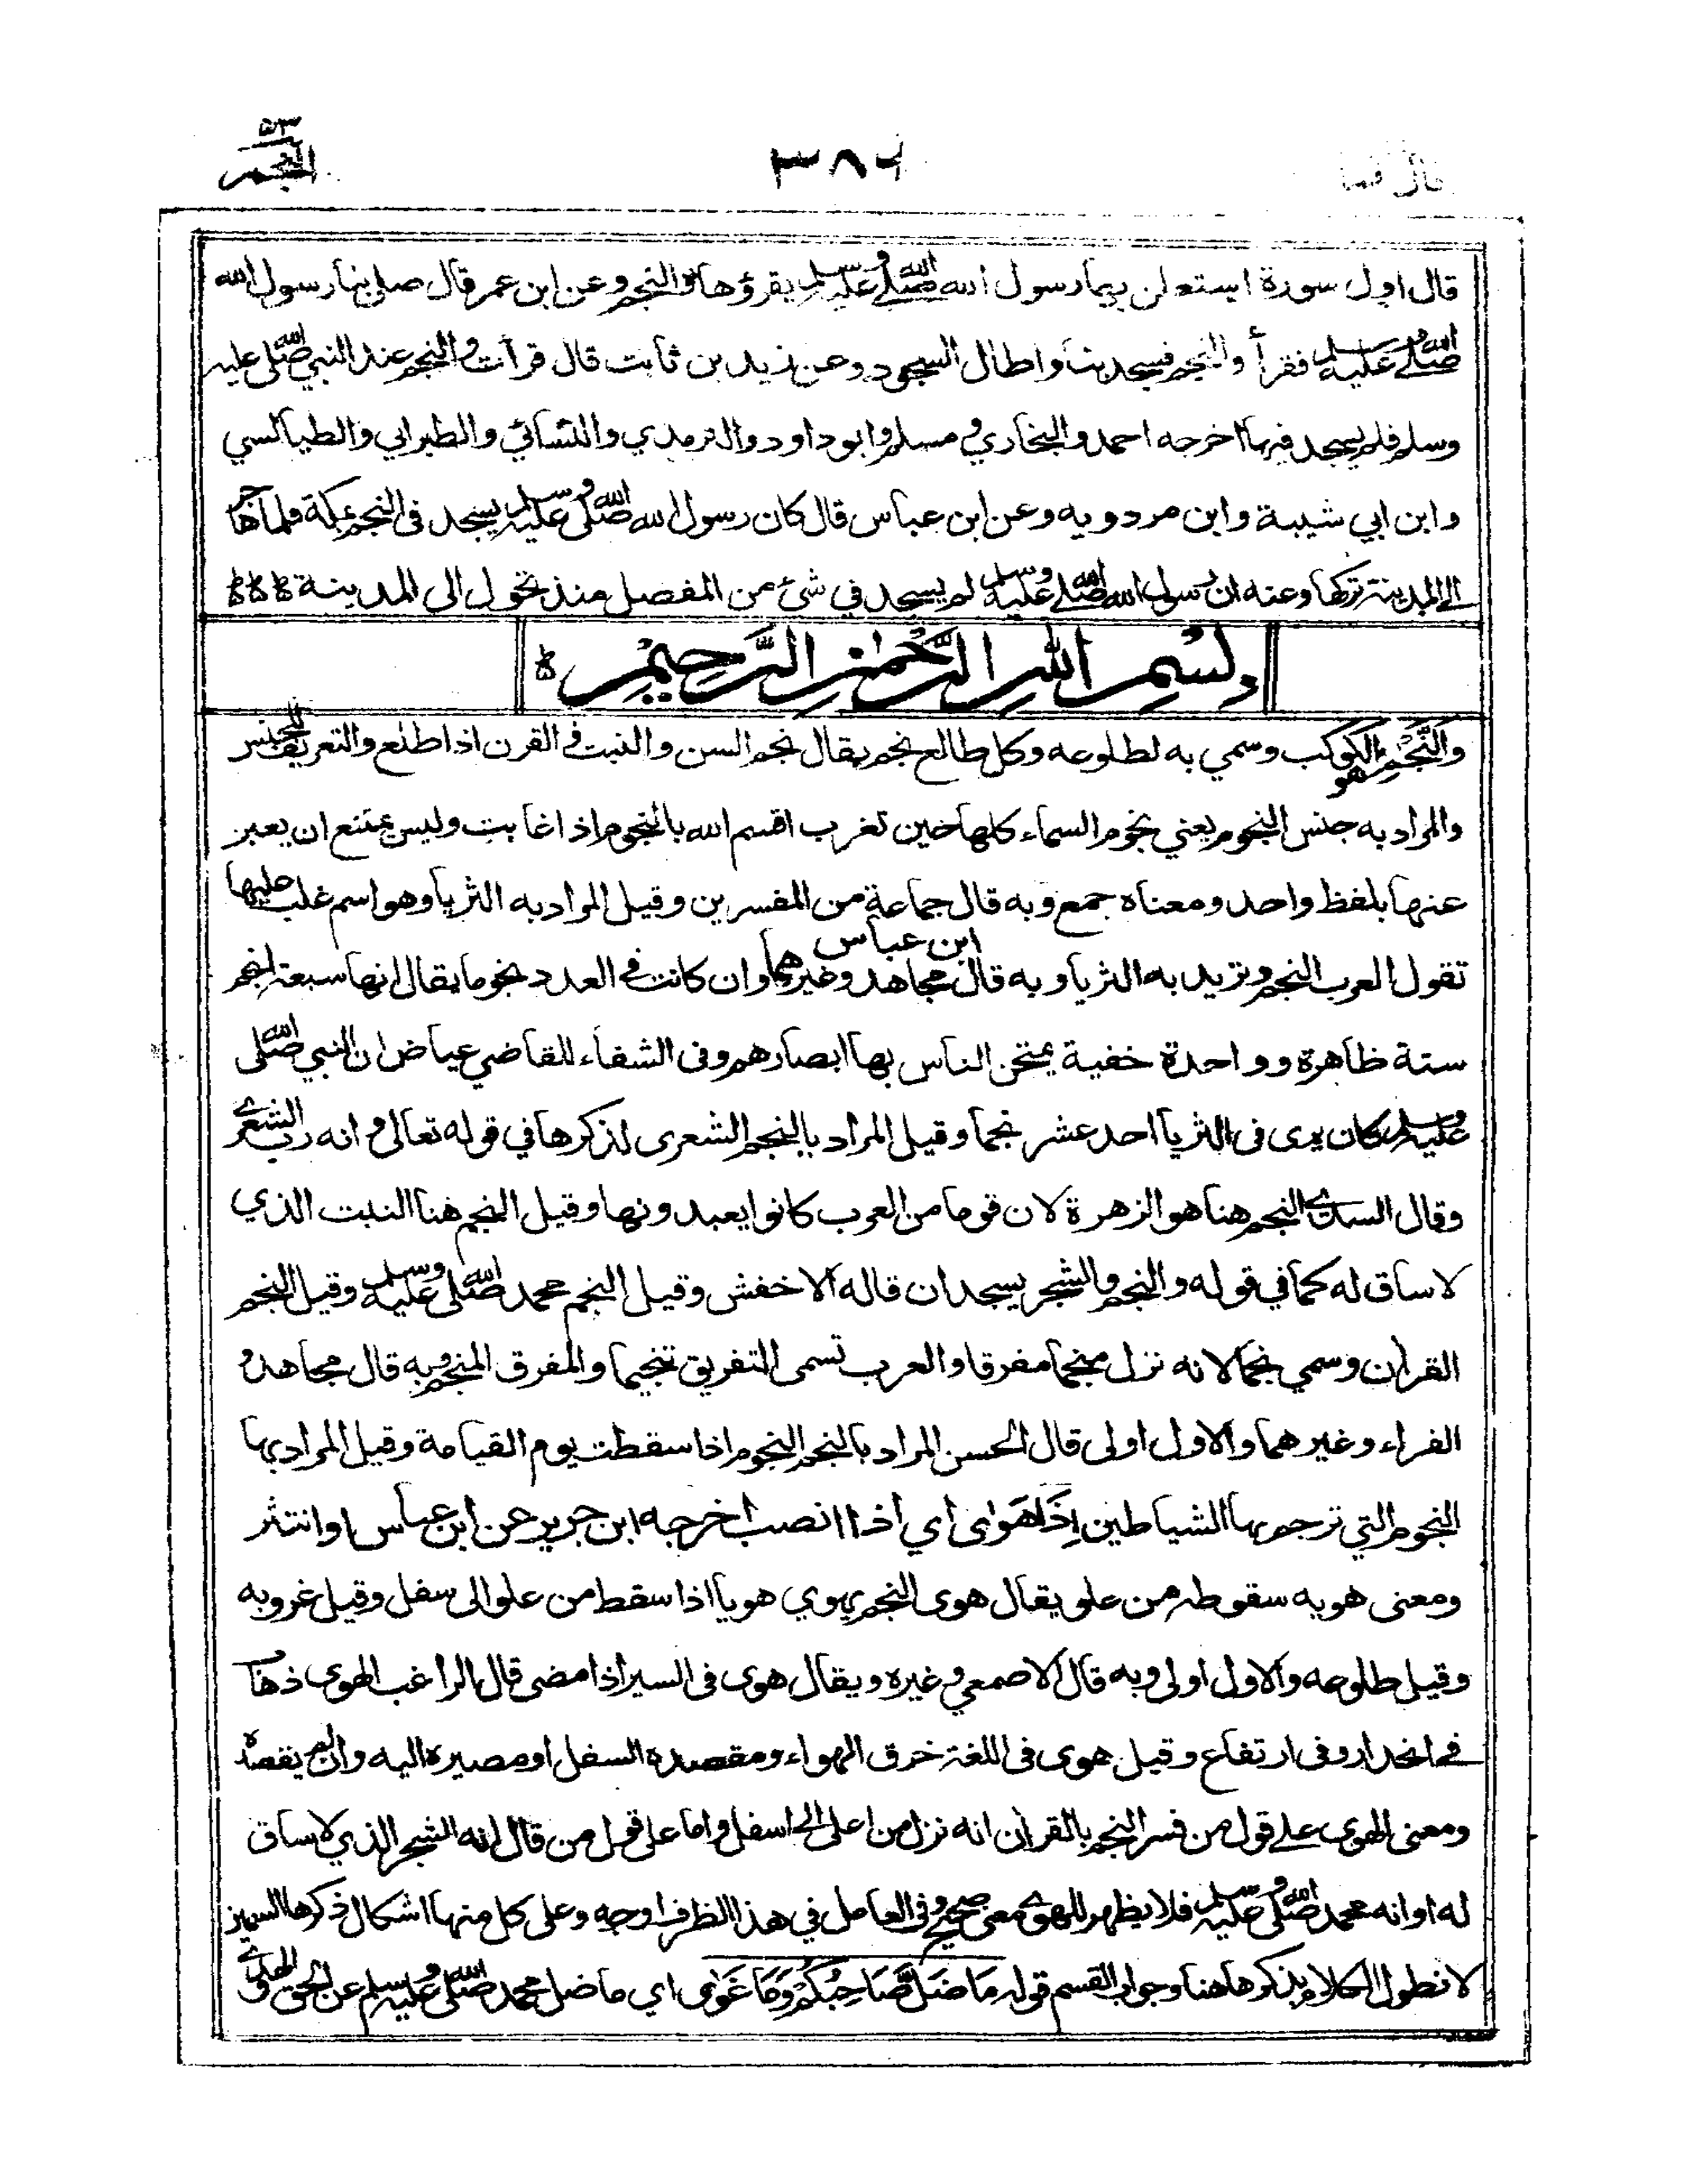 قال فما
٣٨٦
٥٣
النجم
قال اول سورة استعلن بها رسول الله صلى الله عليه وسلم يقرؤها والنجم وعن ابن عمر قال صلى بنا رسول الله
صلى الله عليه وسلم فقرأ والنجم فسجد بنا واطال السجود وعن زيد بن ثابت قال قرأت والنجم عند النبي صلى عليه
وسلم فلم يسجد فيها اخرجه احمد والبخاري و مسلم وابو داود والترمذي والنسائي والطبراني والطيالسي
وابن ابي شيبة وابن مردويه وعن ابن عباس قال كان رسول الله صلى الله عليه وسلم يسجد في النجم بمكة فلما هاجر
الى المدينة تركها وعنه ان رسول الله صلى الله عليه وسلم لم يسجد في شئ من المفصل منذ تحول الى المدينة
بسم الله الرحمن الرحيم
والنَّجْمِ هو الكوكب وسمي به لطلوعه وكل طالع نجم يقال نجم السن والنبت في القرن اذا طلع والتعريف للجنس
والمراد به جنس النجوم يعني نجوم السماء كلها حين تغرب اقسم الله بالنجوم اذا غابت وليس يمتنع ان يعبر
عنها بلفظ واحد ومعناه جمع وبه قال جماعة من المفسرين وقيل المراد به الثريا وهو اسم غلب عليها
تقول العرب النجم وتريد به الثريا وبه قال ابن عباس مجاهد وغيرهما وان كانت في العدد نجوما يقال انها سبعة انجم
ستة ظاهرة وواحدة خفية يمتحن الناس بها ابصارهم وفي الشفاء للقاضي عياض ان النبي صلى الله
عليه وسلم كان يرى في الثريا احد عشر نجما وقيل المراد بالنجم الشعرى لذكرها في قوله تعالى و انه رب الشعرى
وقال السدي النجم هنا هو الزهرة لان قوما من العرب كانوا يعبدونها وقيل النجم هنا النبت الذي
لا ساق له كما في قوله والنجم والشجر يسجدان قاله الاخفش وقيل النجم محمد صلى الله عليه وسلم وقيل النجم
القرأن وسمي نجما لانه نزل منجما مفرقا والعرب تسمى التفريق تنجيما والمفرق المنجم وبه قال مجاهد و
الفراء وغيرهما والاول اولى قال الحسن المراد بالنجم النجوم اذا سقطت يوم القيامة وقيل المراد بها
النجوم التي ترجم بها الشياطين إِذَا هَوٰى اي اذا انصب اخرجه ابن جرير عن ابن عباس او انتثر
ومعنى هويه سقوطه من علو يقال هوى النجم يهوي هويا اذا سقط من علو الى سفل وقيل غروبه
وقيل طلوعه والاول اولى وبه قال الاصمعي و غيره ويقال هوى في السير اذا مضى قال الراغب الهوى ذهاب
في انحدار وفي ارتفاع وقيل هوى في اللغة خرق الهواء ومقصده السفل او مصيره اليه وان لم يقصده
ومعنى الهوى على قول من فسر النجم بالقرأن انه نزل من اعلى الى اسفل واما على قول من قال انه الشجر الذي لا ساق
له او انه محمد صلى الله عليه وسلم فلا يظهر للهوى معنى صحيح وفي العامل في هذا الظرف اوجه وعلى كل منها اشكال ذكرها السمين
لا نطول الكلام بذكرها هنا وجواب القسم قوله مَا ضَلَّ صَاحِبُكُمْ وَمَا غَوٰى اي ما ضل محمد صلى الله عليه وسلم عن الحق والهدى و